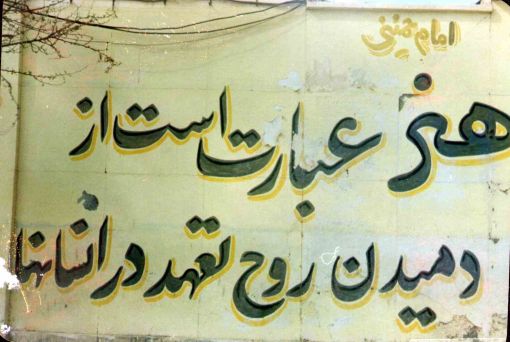 امام خمینی
هنر عبارت است از
دمیدن روح تعهد در انسانها